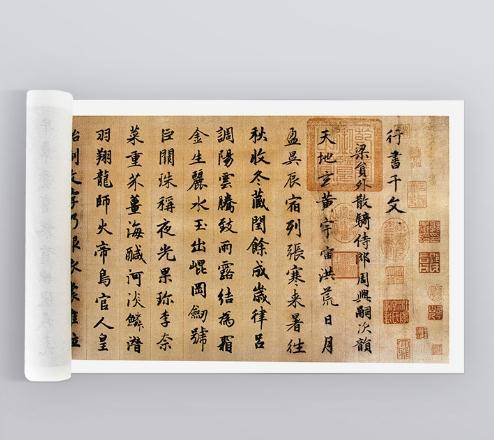 行書千文
梁貟外散騎侍郎周興嗣次韻
天地玄黃宇宙洪荒日月
盈昃辰宿列張寒来暑往
秋收冬藏閏餘成歲律呂
調陽雲騰致雨露結為霜
金生麗水玉出崐岡劒號
巨闕珠稱夜光果珍李柰
菜重芥薑海醎河淡鱗潛
羽翔龍師火帝鳥官人皇
始制文字乃服衣裳推位